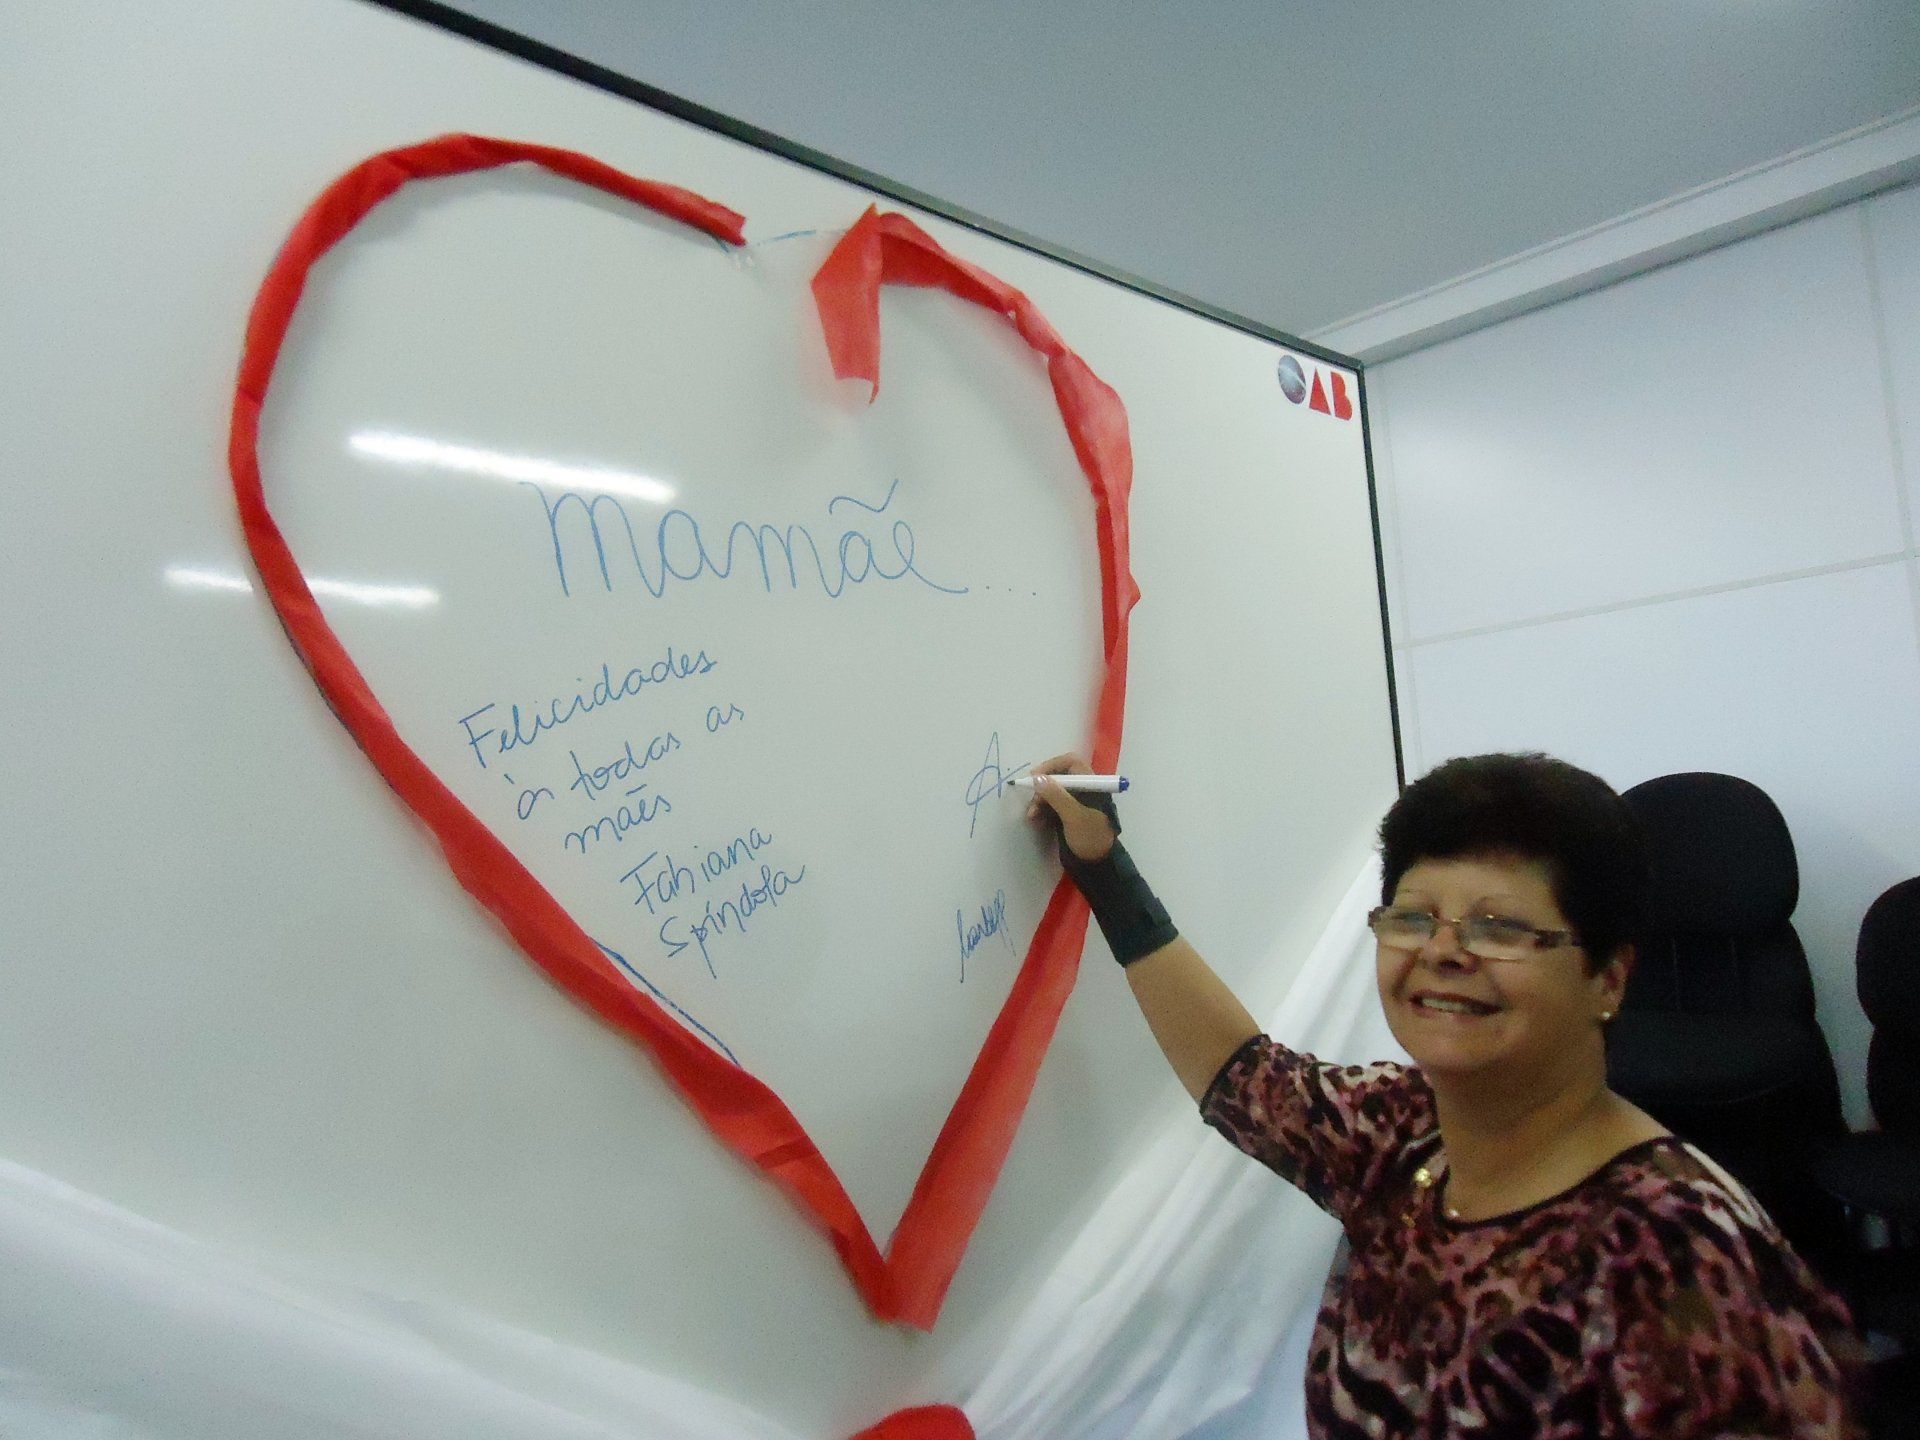 OAB
Mamãe...
Felicidades
às todas as
mães
Fabiana
Spíndola
A